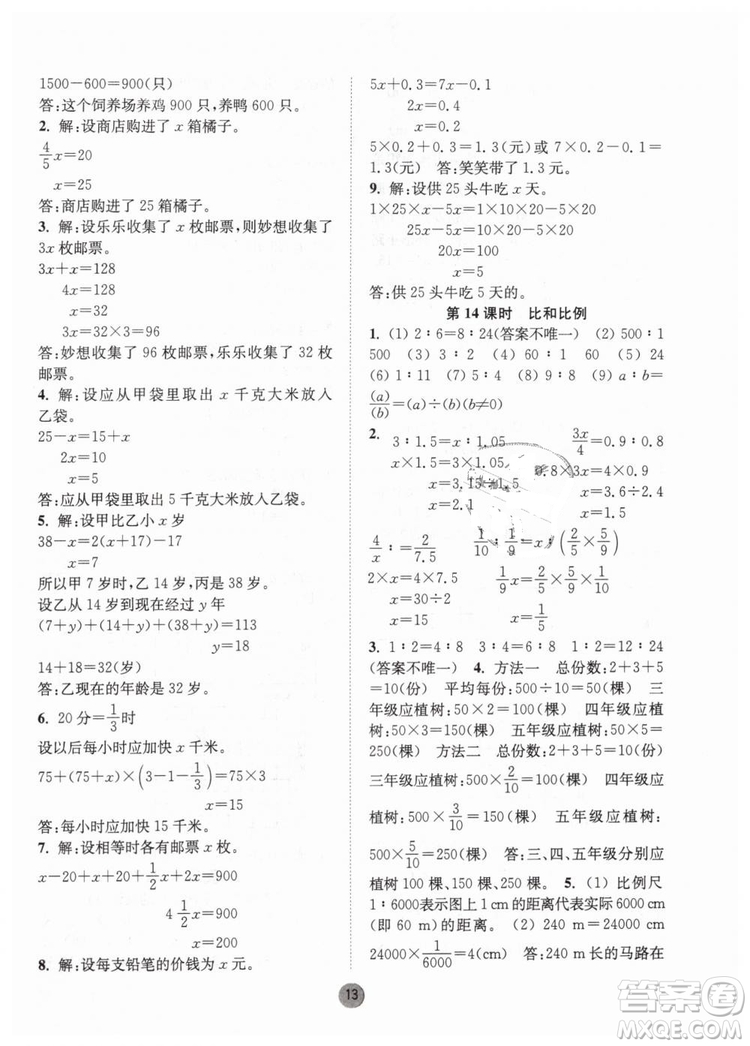 1500－600＝900(只)
答:这个饲养场养鸡 900 只,养鸭 600 只。
2. 解:设商店购进了 x 箱橘子。
4/5 x＝20
x＝25
答:商店购进了 25 箱橘子。
3. 解:设乐乐收集了 x 枚邮票,则妙想收集了
3x 枚邮票。
3x＋x＝128
4x＝128
x＝32
3x＝32×3＝96
答:妙想收集了 96 枚邮票,乐乐收集了 32 枚
邮票。
4. 解:设应从甲袋里取出 x 千克大米放入
乙袋。
25－x＝15＋x
2x＝10
x＝5
答:应从甲袋里取出 5 千克大米放入乙袋。
5. 解:设甲比乙小 x 岁
38－x＝2(7＋x)－17
x＝7
所以甲 7 岁时,乙 14 岁,丙是 38 岁。
设乙从 14 岁到现在经过 y 年
(7＋y)＋(14＋y)＋(38＋y)＝113
y＝18
14＋18＝32(岁)
答:乙现在的年龄是 32 岁。
6. 20 分＝1/3 时
设以后每小时应加快 x 千米。
75＋(75＋x)×(3－1－1/3)＝75×3
x＝15
答:每小时应加快 15 千米。
7. 解:设相等时各有邮票 x 枚。
x－20＋x＋20＋1/2 x＋2x＝900
4 1/2 x＝900
x＝200
8. 解:设每支铅笔的价钱为 x 元。
5x＋0.3＝7x－0.1
2x＝0.4
x＝0.2
5×0.2＋0.3＝1.3(元)或 7×0.2－0.1＝
1.3(元) 答:笑笑带了 1.3 元。
9. 解:设供 25 头牛吃 x 天。
1×25×x－5x＝10×20－5×20
25x－5x＝200－100
20x＝100
x＝5
答:供 25 头牛吃 5 天。
第 14 课时 比和比例
1. (1) 2∶6＝8∶24(答案不唯一) (2) 500∶1
500 (3) 3∶2 (4) 60 15 (5) 24
(6) 1∶2 (7) 4∶5 (8) 9∶8 (9) a∶b＝
(a)/(b)＝(a)÷(b)(b≠0)
2. 3∶1.5＝x∶1.05 3x/4＝0.9∶0.8
x×1.5＝3×1.05 0.8×3x＝4×0.9
x＝3.15÷1.5 x＝3.6÷2.4
x＝2.1 x＝1.5
4/x∶＝2/7.5 1/10∶1/9＝x∶(2/5×5/9)
2×x＝4×7.5 1/9 x＝1/10×2/9
x＝30÷2 x＝1/5
x＝15
3. 1∶2＝4∶8 3∶4＝6∶8 1∶2＝12∶24
(答案不唯一) 4. 方法一 总份数:2＋3＋
5＝10(份) 平均每份:500÷10＝50(棵) 三
年级应植树:50×2＝100(棵) 四年级应植
树:50×3＝150(棵) 五年级应植树:50×5＝
250(棵) 方法二 总份数:2＋3＋5＝10(份)
三年级应植树:500×2/10＝100(棵) 四年级应
植树:500×3/10＝150(棵) 五年级应植树:
500×5/10＝250(棵) 答:三、四、五年级分别应
植树 100 棵、150 棵、250 棵。 5. (1) 比例尺
1∶6000表示图上 1 cm 的距离代表实际 6000 cm
(即 60 m)的距离。 (2) 240 m＝24000 cm
24000×1/6000＝4(cm) 答:240 m长的马路在
13
答案圈
MXQE.COM